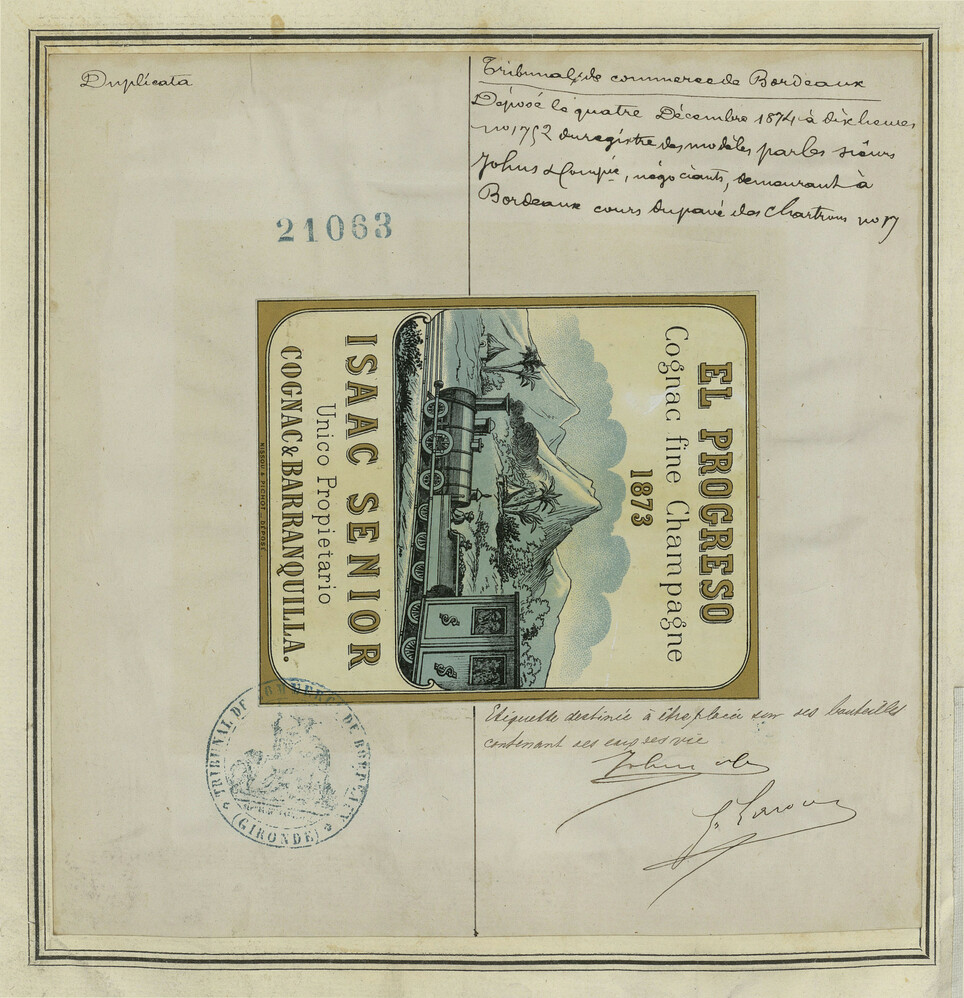 Duplicata
Tribunal de commerce de Bordeaux
Déposé le quatre Décembre 1874 à dix heures
no 1752 du registre des modèles par les siêurs
Johns & Compie, négociants, demeurant à
Bordeaux cours du pavé des Chartrons no 17
21063
EL PROGRESO
Cognac fine Champagne
1873
ISAAC SENIOR
Unico Propietario
COGNAC & BARRANQUILLA.
TRIBUNAL DE COMMERCE DE BORDEAUX
(GIRONDE)
Etiquette destinée à être placée sur ses bouteilles
contenant ses eaux de vie
Johns